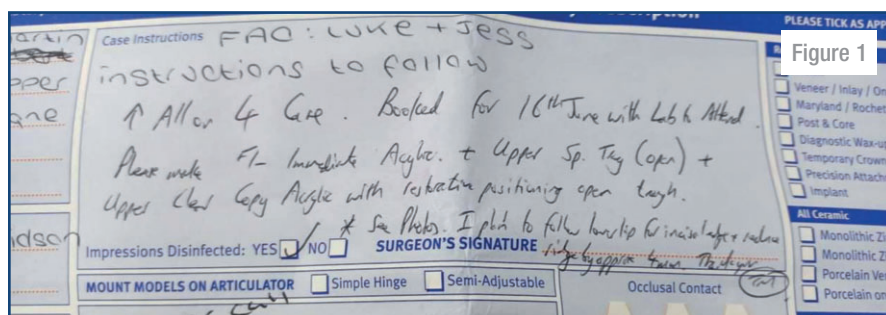 PLEASE TICK AS APP
Figure 1
Case Instructions FAO: LUKE + Jess
instructions to follow
↑ All on 4 Case. Booked for 16th June with Lab to Attend.
Please make F/- Immediate Acrylic. + Upper Sp. Tray (open) +
Upper Clear Copy Acrylic with restorative positioning open trough.
* See Photos. I plan to follow lowerlip for incisal edge + reduce
ridge by approx
Impressions Disinfected: YES NO SURGEON'S SIGNATURE
MOUNT MODELS ON ARTICULATOR Simple Hinge Semi-Adjustable
Occlusal Contact
Veneer / Inlay / On
Maryland / Rochet
Post & Core
Diagnostic Wax-u
Temporary Crown
Precision Attach
Implant
All Ceramic
Monolithic Zi
Monolithic Z
Porcelain Ve
Porcelain on